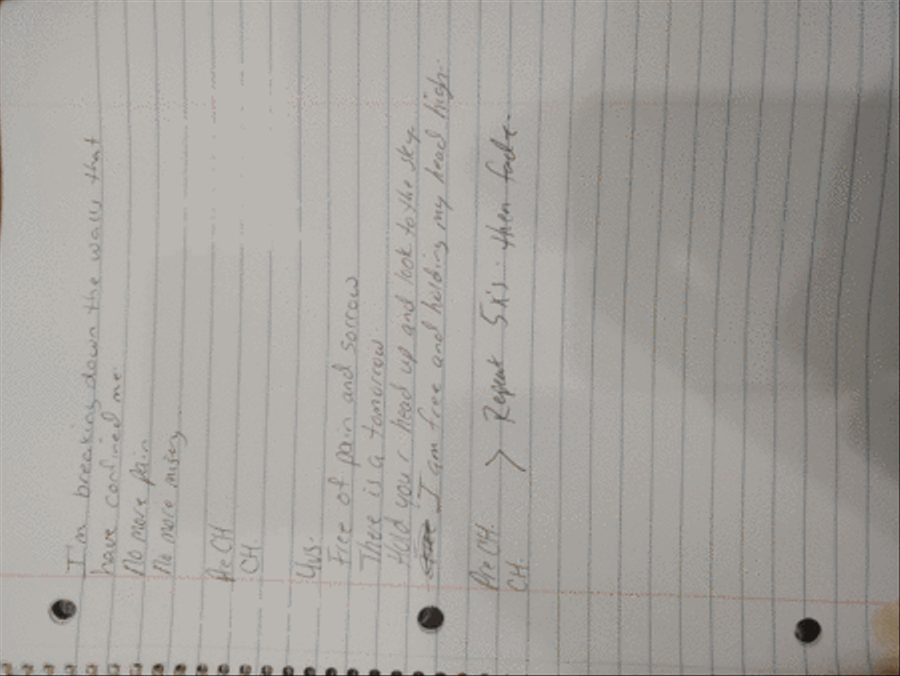 I'm breaking down the walls that
have confined me
No more pain
No more misery
Pre CH
CH.
Vrs.
Free of pain and sorrow
There is a tomorrow
Hold your head up and look to the sky.
I am free and holding my head high.
Pre CH. > Repeat 5x's.. then fade.
CH.